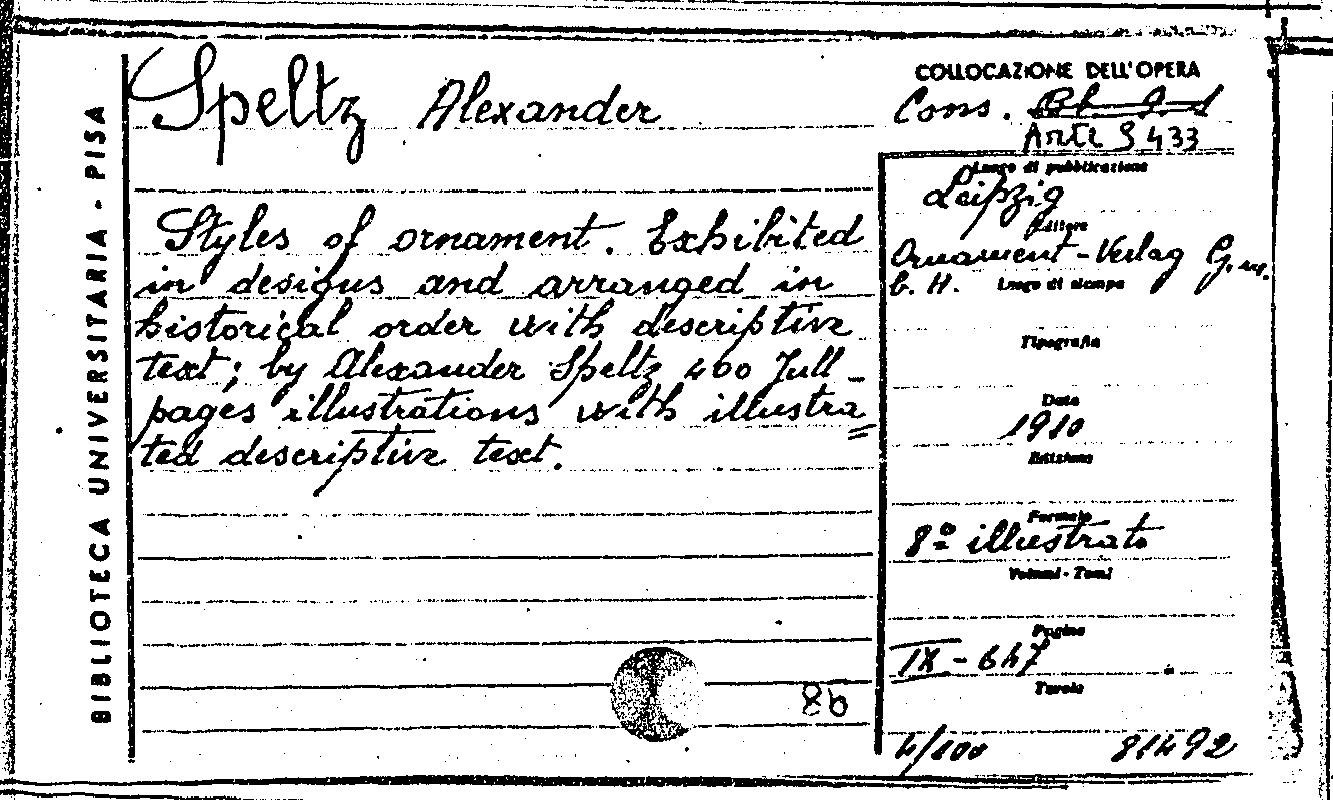 BIBLIOTECA UNIVERSITARIA - PISA
Speltz Alexander
Styles of ornament. Exhibited
in designs and arranged in
historical order with descriptive
text; by Alexander Speltz 400 full_
pages illustrations with illustra=
ted descriptive text.
8b
COLLOCAZIONE DELL'OPERA
Cons.
Arte S 433
Luogo di pubblicazione
Leipzig
Editore
Ornament-Verlag G.m.
b. H.
Luogo di stampa
Tipografia
Data
1910
Edizione
Formato
8º illustrato
Volumi - Tomi
Pagine
IX - 647
Tavole
4/100 81492